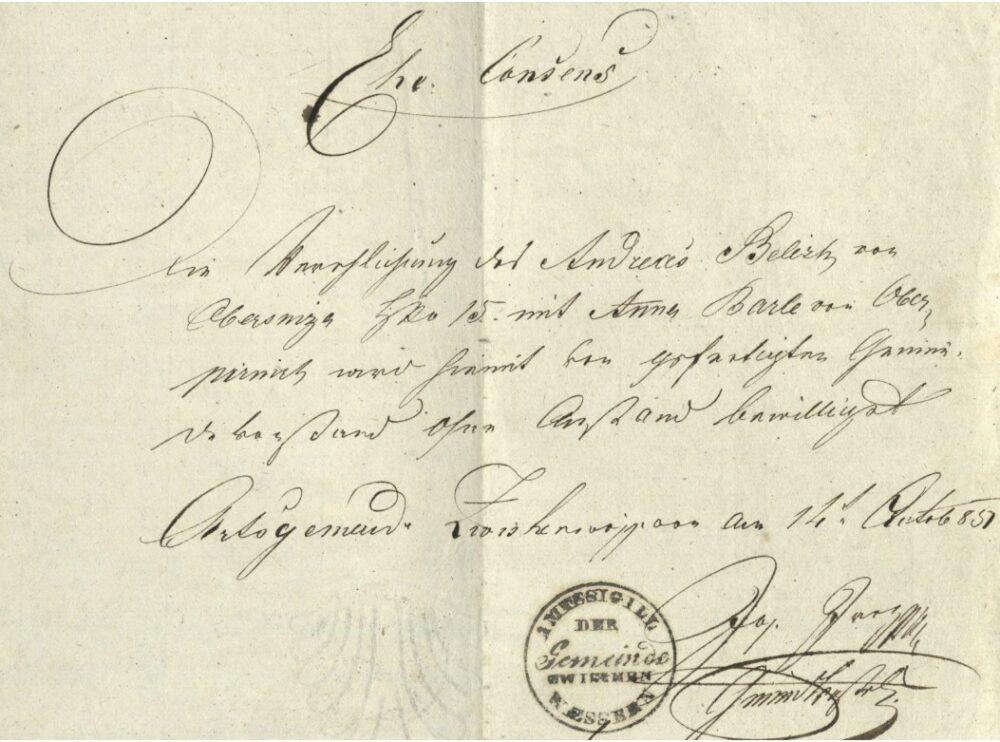 Ehe Consens
Die Verehlichung des Andreas Belizh von
Obersniza HNo 15. mit Anna Barle von Ober,
pirnich wird hiemit von gefertigten Gemein,
devorstand ohne Anstand bewilliget
Ortsgemeinde Zwischenwässern am 14t October 851
AMTSSIGILL
DER
Gemeinde
ZWISCHEN
WÆSSERN
Jos.
Gemeindevorstand